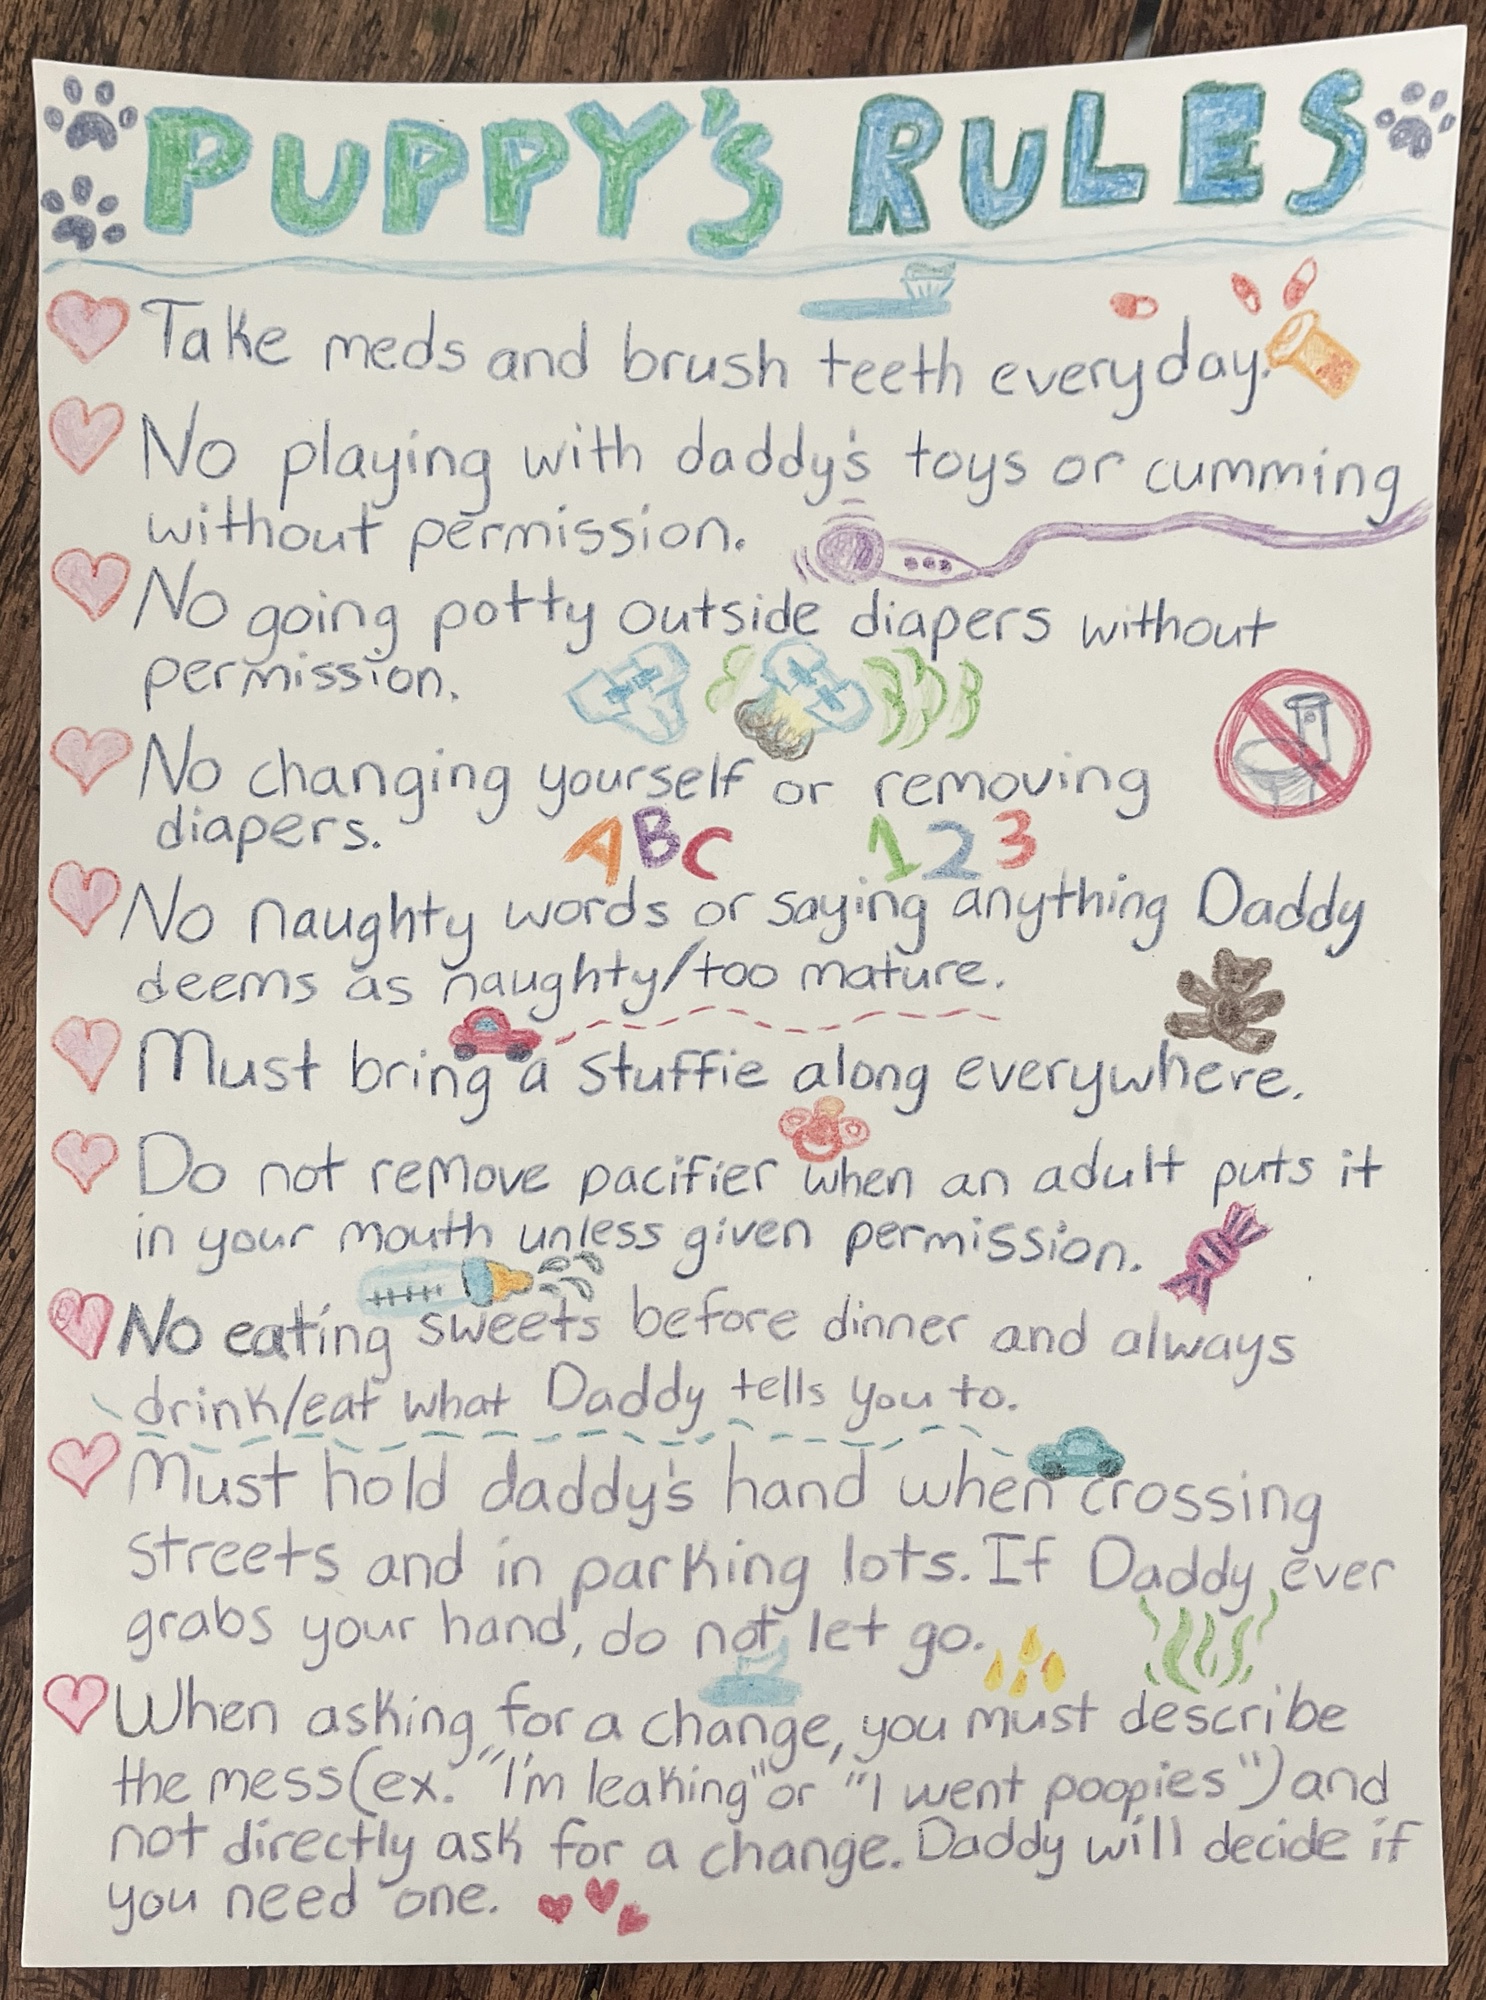 PUPPY'S RULES
Take meds and brush teeth everyday.
No playing with daddy's toys or cumming
without permission.
No going potty outside diapers without
permission.
No changing yourself or removing
diapers.
ABC 123
No naughty words or saying anything Daddy
deems as naughty/too mature.
Must bring a stuffie along everywhere.
Do not remove pacifier when an adult puts it
in your mouth unless given permission.
No eating sweets before dinner and always
drink/eat what Daddy tells you to.
Must hold daddy's hand when crossing
streets and in parking lots. If Daddy ever
grabs your hand, do not let go.
When asking for a change, you must describe
the mess(ex. "I'm leaking" or "I went poopies") and
not directly ask for a change. Daddy will decide if
you need one.